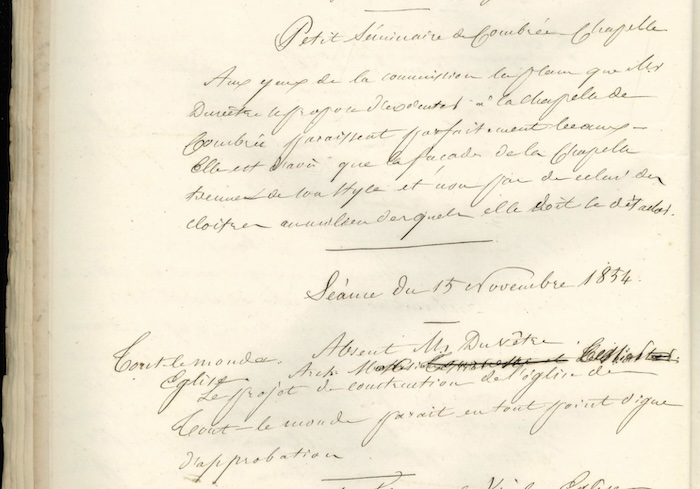 Petit Séminaire de Combrée Chapelle
Aux yeux de la commission les plans que Mr
Duvêtre se propose d'exécuter à la Chapelle de
Combrée paraissent parfaitement beaux.
Elle est d'avis que la façade de la Chapelle
tienne de son style et non pas de celui des
cloitres au milieu desquels elle doit se détacher.
Séance du 15 Novembre 1854.
Absent Mr Duvêtre.
Tout-le-monde. Arch.
Eglise. Le projet de construction de l'église de
Tout-le-monde parait en tout point digne
d'approbation
Eglise